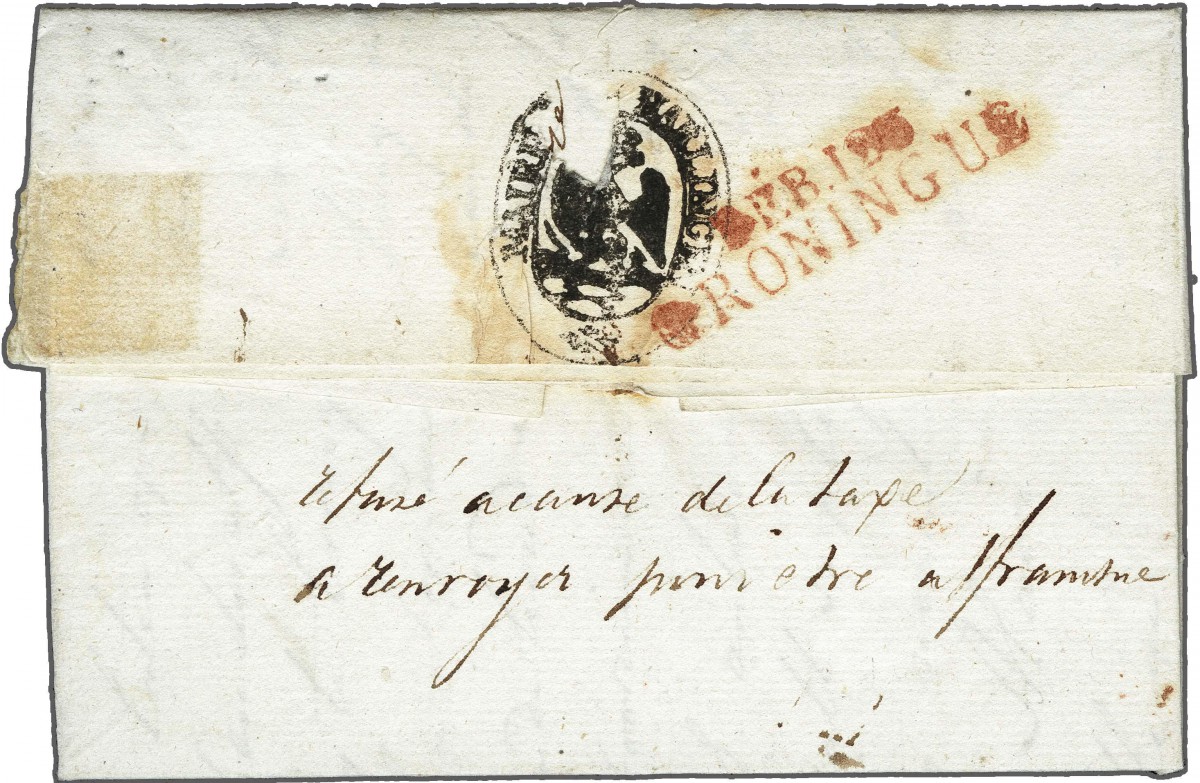 MAIRIE
DÉB. 123
GRONINGUE
refusé acause de la taxe
a renvoyer pour etre affranchie